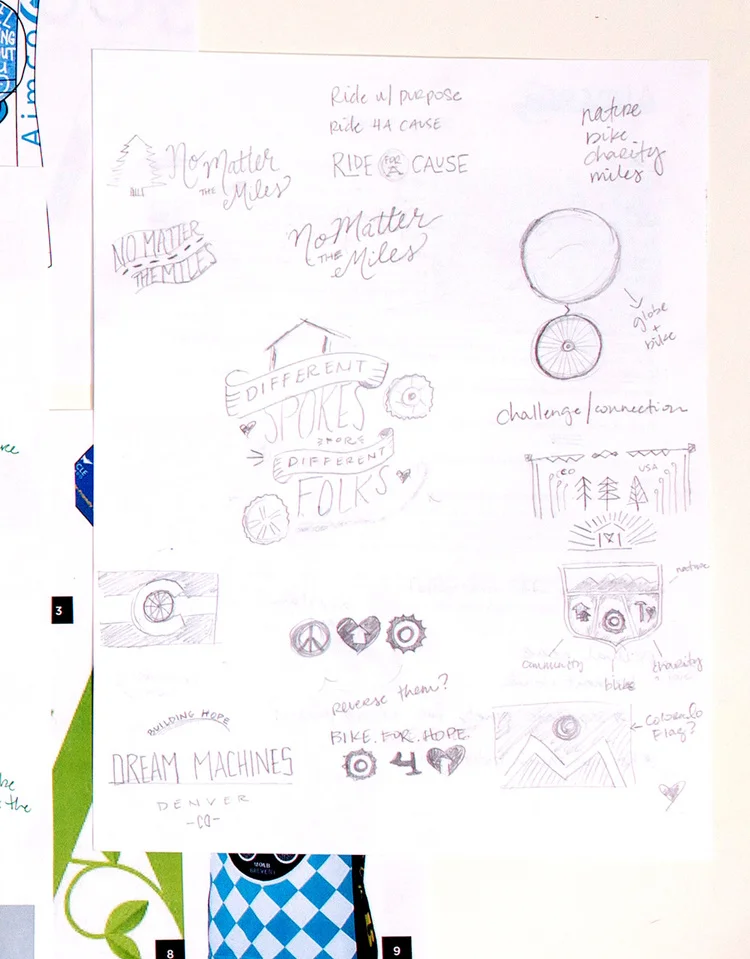 Aimco
Ride w/ purpose
Ride 4A CAUSE
RIDE FOR A CAUSE
nature
bike
charity
miles
No Matter
THE Miles
NO MATTER
THE MILES
No Matter
THE Miles
globe
+
bike
DIFFERENT
SPOKES
FOR
DIFFERENT
FOLKS
challenge/connection
CO
USA
nature
community
bikes
charity
reverse them?
BIKE. FOR. HOPE.
4
Colorado
Flag?
BUILDING HOPE
DREAM MACHINES
DENVER
-CO-
3
the
8
9